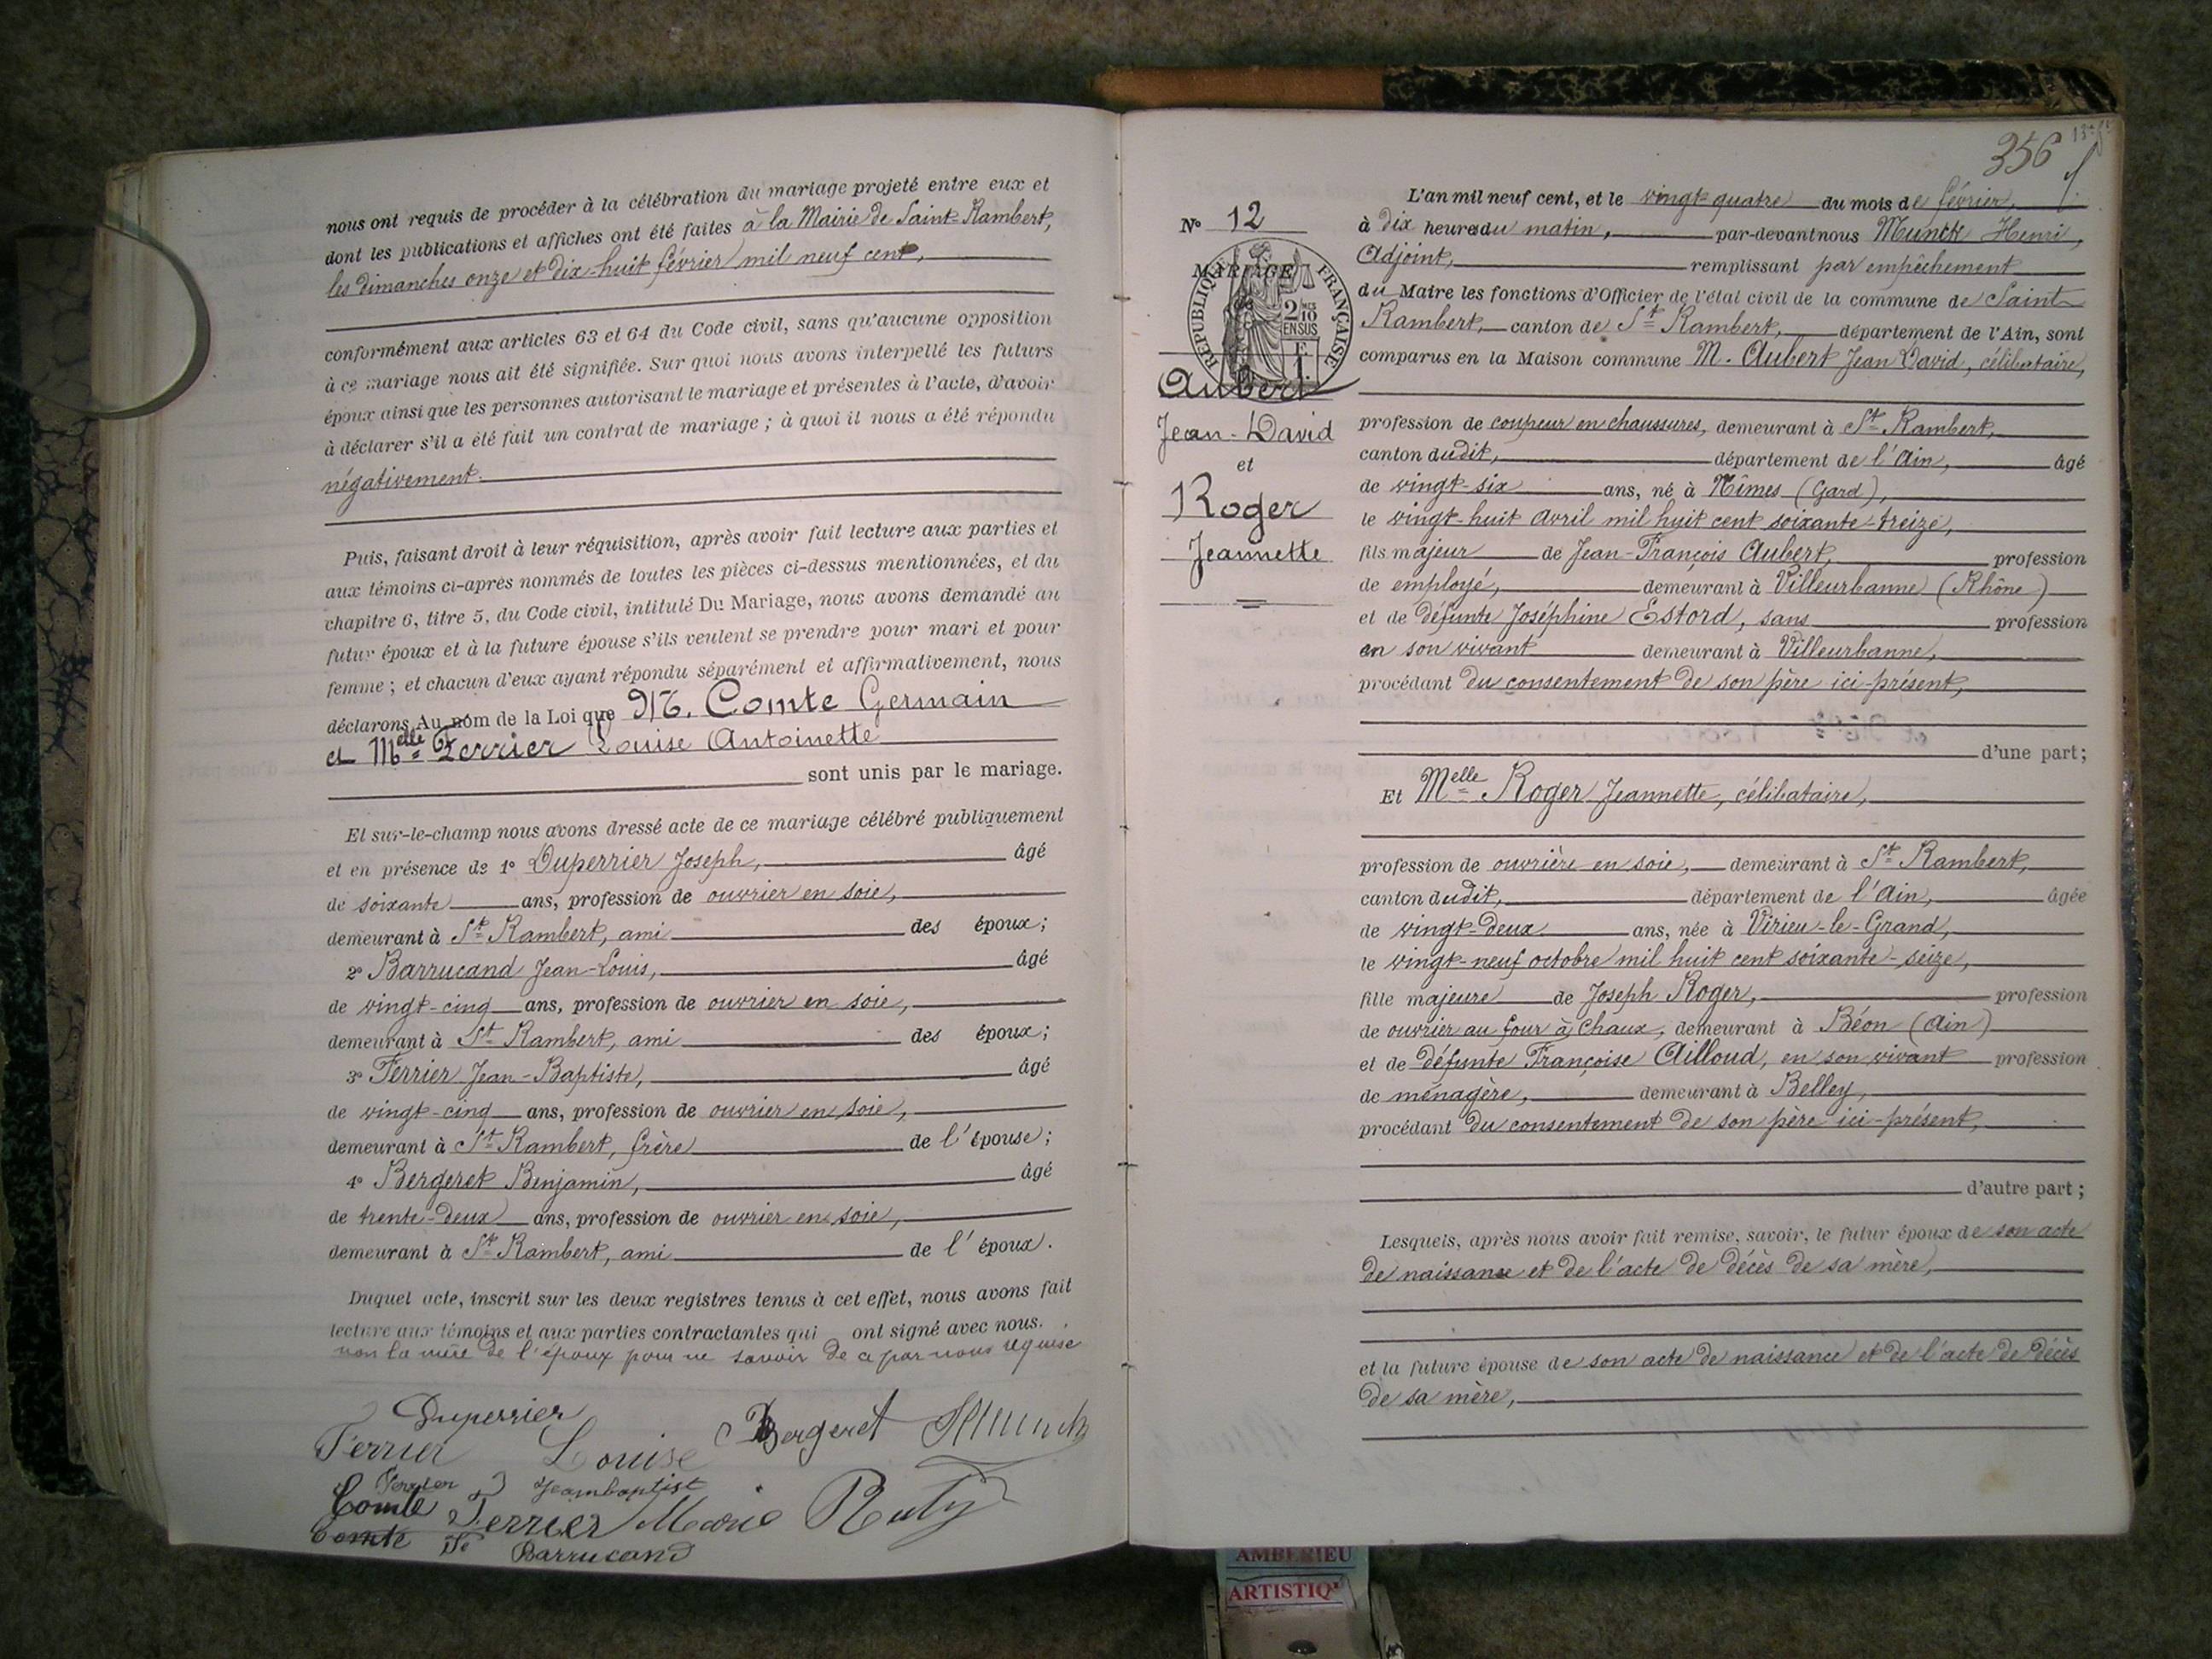 nous ont requis de procéder à la célébration du mariage projeté entre eux et
dont les publications et affiches ont été faites à la Mairie de Saint-Rambert,
les dimanches onze et dix-huit février mil neuf cent,
conformément aux articles 63 et 64 du Code civil, sans qu'aucune opposition
à ce mariage nous ait été signifiée. Sur quoi nous avons interpellé les futurs
époux ainsi que les personnes autorisant le mariage et présentes à l'acte, d'avoir
à déclarer s'il a été fait un contrat de mariage ; à quoi il nous a été répondu
négativement.
Puis, faisant droit à leur réquisition, après avoir fait lecture aux parties et
aux témoins ci-après nommés de toutes les pièces ci-dessus mentionnées, et du
chapitre 6, titre 5, du Code civil, intitulé Du Mariage, nous avons demandé au
futur époux et à la future épouse s'ils veulent se prendre pour mari et pour
femme ; et chacun d'eux ayant répondu séparément et affirmativement, nous
déclarons Au nom de la Loi que M. Comte Germain
et Melle Ferrier Louise Antoinette
sont unis par le mariage.
Et sur-le-champ nous avons dressé acte de ce mariage célébré publiquement
et en présence de 1º Duperrier Joseph, âgé
de soixante ans, profession de ouvrier en soie,
demeurant à St Rambert, ami des époux ;
2º Barrucand Jean-Louis, âgé
de vingt-cinq ans, profession de ouvrier en soie,
demeurant à St Rambert, ami des époux ;
3º Ferrier Jean-Baptiste, âgé
de vingt-cinq ans, profession de ouvrier en soie,
demeurant à St Rambert, frère de l'épouse ;
4º Bergeret Benjamin, âgé
de trente-deux ans, profession de ouvrier en soie,
demeurant à St Rambert, ami de l'époux.
Duquel acte, inscrit sur les deux registres tenus à cet effet, nous avons fait
lecture aux témoins et aux parties contractantes qui ont signé avec nous.
non la mère de l'époux pour ne savoir de ce par nous requise
Duperrier
Ferrier Louise Bergeret HMunck
Ferrier Jeanbaptist
Comte Ferrier Marie Ruty
Comte
Barrucand
356
L'an mil neuf cent, et le vingt-quatre du mois de février,
Nº 12
à dix heures du matin, par-devant nous Munck Henri,
Adjoint, remplissant par empêchement
du Maire les fonctions d'Officier de l'état civil de la commune de Saint-
Rambert, canton de St Rambert, département de l'Ain, sont
comparus en la Maison commune M. Aubert Jean David, célibataire,
MARIAGE
RÉPUBLIQUE FRANÇAISE
2 MES
10
EN SUS
F
1
Aubert
Jean-David
et
Roger
Jeannette
profession de coupeur en chaussures, demeurant à St Rambert,
canton dudit, département de l'Ain, âgé
de vingt-six ans, né à Nîmes (Gard),
le vingt-huit avril mil huit cent soixante-treize,
fils majeur de Jean-François Aubert, profession
de employé, demeurant à Villeurbanne (Rhône)
et de défunte Joséphine Estord, sans profession
en son vivant demeurant à Villeurbanne,
procédant du consentement de son père ici-présent,
d'une part ;
Et Melle Roger Jeannette, célibataire,
profession de ouvrière en soie, demeurant à St Rambert,
canton dudit, département de l'Ain, âgée
de vingt-deux ans, née à Virieu-le-Grand,
le vingt-neuf octobre mil huit cent soixante-seize,
fille majeure de Joseph Roger, profession
de ouvrier au four à chaux, demeurant à Béon (Ain)
et de défunte Françoise Ailloud, en son vivant profession
de ménagère, demeurant à Belley,
procédant du consentement de son père ici-présent,
d'autre part ;
Lesquels, après nous avoir fait remise, savoir, le futur époux de son acte
de naissance et de l'acte de décès de sa mère,
et la future épouse de son acte de naissance et de l'acte de décès
de sa mère,
AMBERIEU
ARTISTIQ